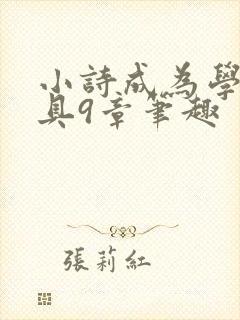 小詩成為學
具9章筆趣
張莉紅